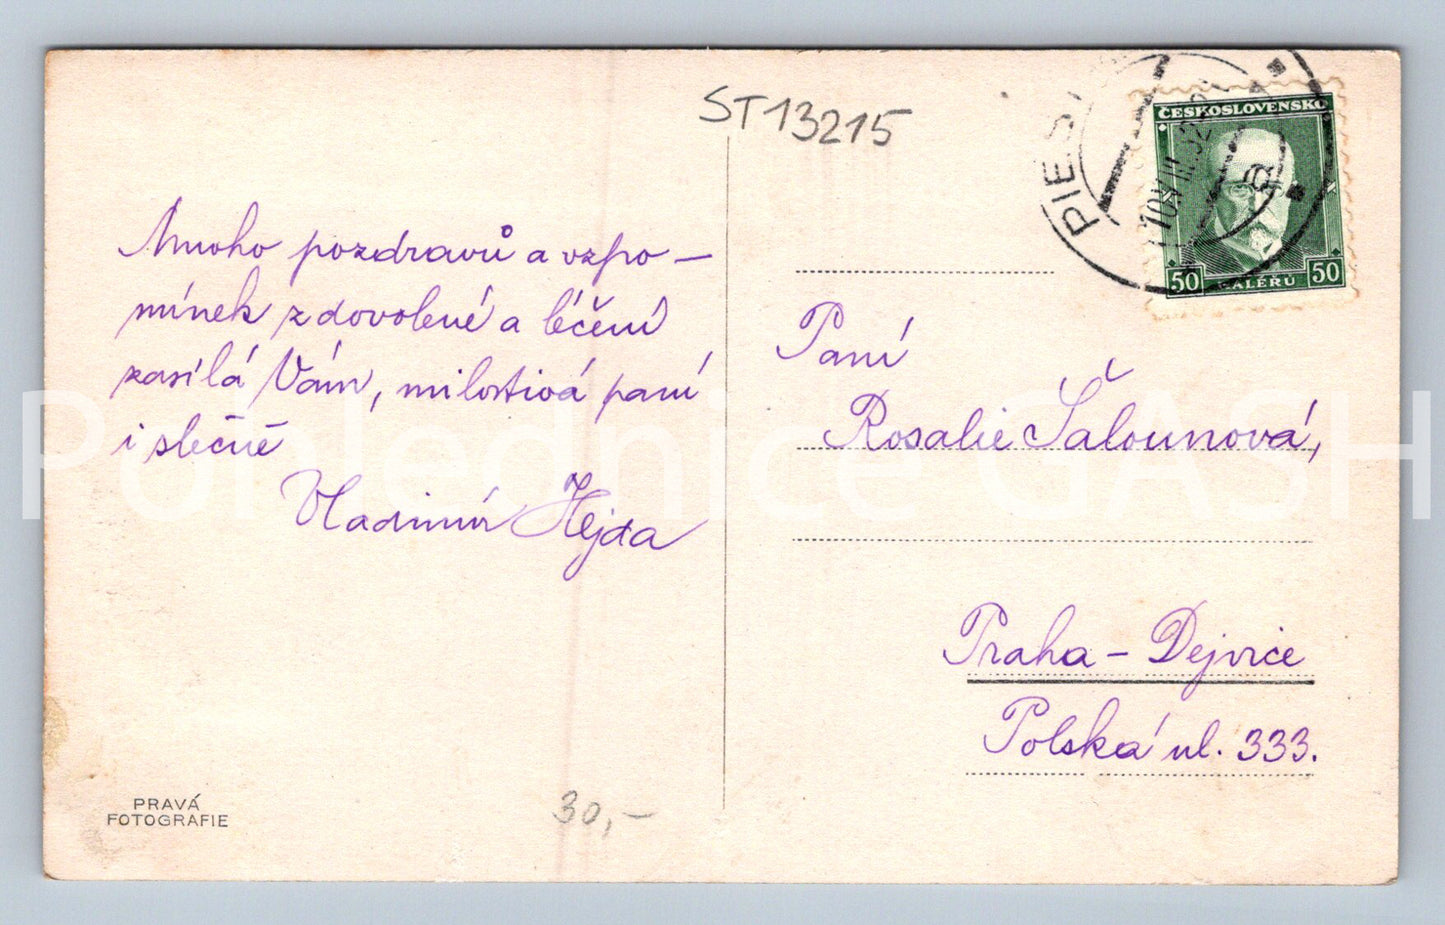 ST13215
Mnoho pozdravů a vzpo–
mínek z dovolené a léčení
zasílá Vám, milostivá paní
i slečně
Vladimír Hejda
PRAVÁ
FOTOGRAFIE
30,–
PIEŠ
10.VIII.32
a
ČESKOSLOVENSKO
50 HALÉŘŮ 50
Paní
Rosalie Šalounová,
Praha – Dejvice
Polská ul. 333.
Pohlednice GASH